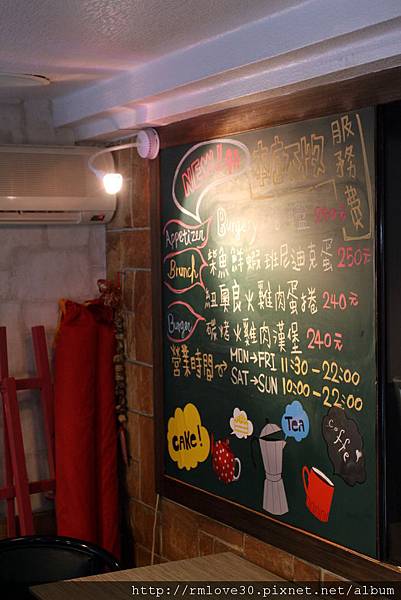 NEW!!
本店不收
服務費
Appetizer
Brunch
250元
柴魚鮮蝦班尼迪克蛋 250元
紐奧良火雞肉蛋捲 240元
Burger
碳烤火雞肉漢堡 240元
營業時間
MON→FRI 11:30-22:00
SAT→SUN 10:00-22:00
CAKE!
TEA
coffee
http://rmlove30.pixnet.net/album